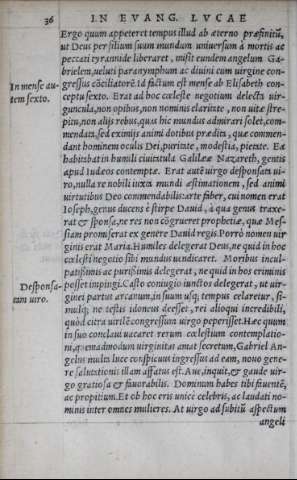 36 IN EVANG. LVCAE
Ergo quum appeteret tempus illud ab aeterno præfinitū,
ut Deus per filium suum mundum uniuersum à mortis ac
peccati tyrannide liberaret, misit eundem angelum Ga-
brielem, ueluti paranymphum ac diuini cum uirgine con-
In mense au- gressus cōciliatorē. Id factum est mense ab Elisabeth con-
tem sexto. ceptu sexto. Erat ad hoc cœleste negotium delecta uir-
guncula, non opibus, non nominis claritate, non uitæ stre-
pitu, non alijs rebus, quas hic mundus admirari solet, com-
mendata, sed eximijs animi dotibus prædita, quæ commen-
dant hominem oculis Dei, puritate, modestia, pietate. Ea
habitabat in humili ciuitatula Galilææ Nazareth, gentis
apud Iudæos contemptæ. Erat autē uirgo desponsata ui-
ro, nulla re nobili iuxta mundi æstimationem, sed animi
uirtutibus Deo commendabili: arte fabер, cui nomen erat
Ioseph, genus ducens è stirpe Dauid, à qua genus traxe-
rat & sponsa, ne res non cōgrueret prophetiæ, quæ Mes-
siam promiserat ex genere Dauid regis. Porrò nomen uir
ginis erat Maria. Humiles delegerat Deus, ne quid in hoc
cœlesti negotio sibi mundus uendicaret. Moribus incul-
patissimis ac purissimis delegerat, ne quid in hos criminis
Desponsa- posset impingi. Casto coniugio iunctos delegerat, ut uir-
tam uiro. ginei partus arcanum, in suum usq; tempus celaretur, si-
mulq; ne testis idoneus deesset, rei alioqui incredibili,
quòd citra uirilē congressum uirgo peperisset. Hæc quum
in suo conclaui uacaret rerum cœlestium contemplatio-
ni, quemadmodum uirginitas amat secretum, Gabriel An-
gelus multa luce conspicuus ingressus ad eam, nouo gene-
re salutationis illam affatus est. Aue, inquit, & gaude uir-
go gratiosa & fauorabilis. Dominum habes tibi fauentē,
ac propitium. Et ob hoc eris unicè celebris, ac laudati no-
minis inter omnes mulieres. At uirgo ad subitū aspectum
angeli